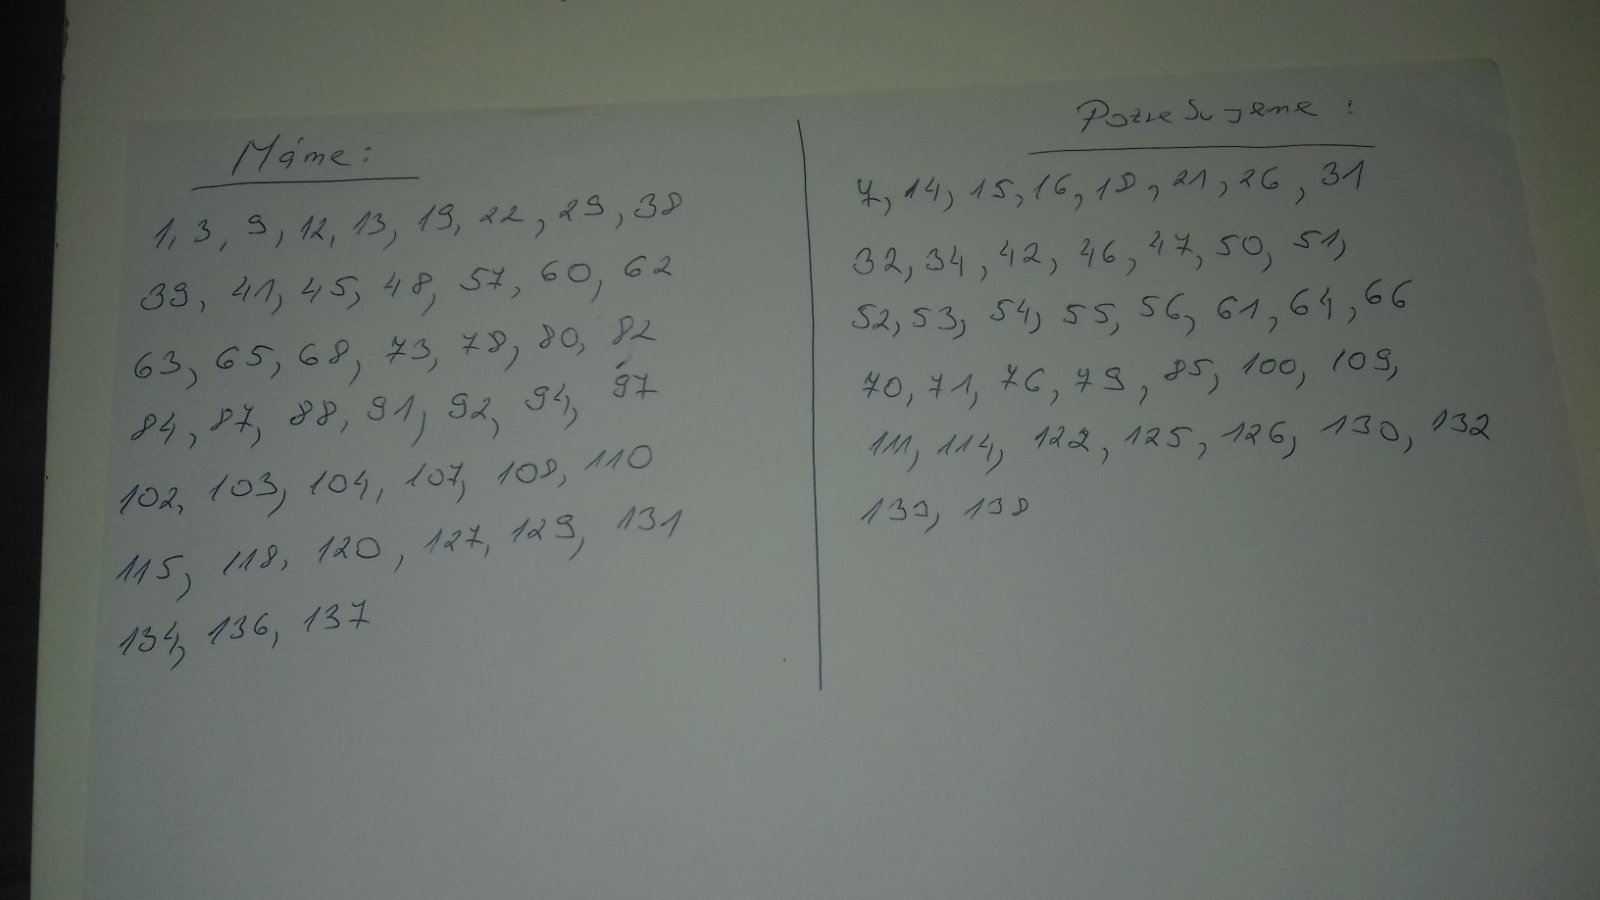 Máme:
1, 3, 9, 12, 13, 19, 22, 29, 38
39, 41, 45, 48, 57, 60, 62
63, 65, 68, 73, 78, 80, 82
84, 87, 88, 91, 92, 94, 97
102, 103, 104, 107, 108, 110
115, 118, 120, 127, 129, 131
134, 136, 137
Potrebujeme:
7, 14, 15, 16, 18, 21, 26, 31
32, 34, 42, 46, 47, 50, 51,
52, 53, 54, 55, 56, 61, 64, 66
70, 71, 76, 79, 85, 100, 109,
111, 114, 122, 125, 126, 130, 132
133, 138